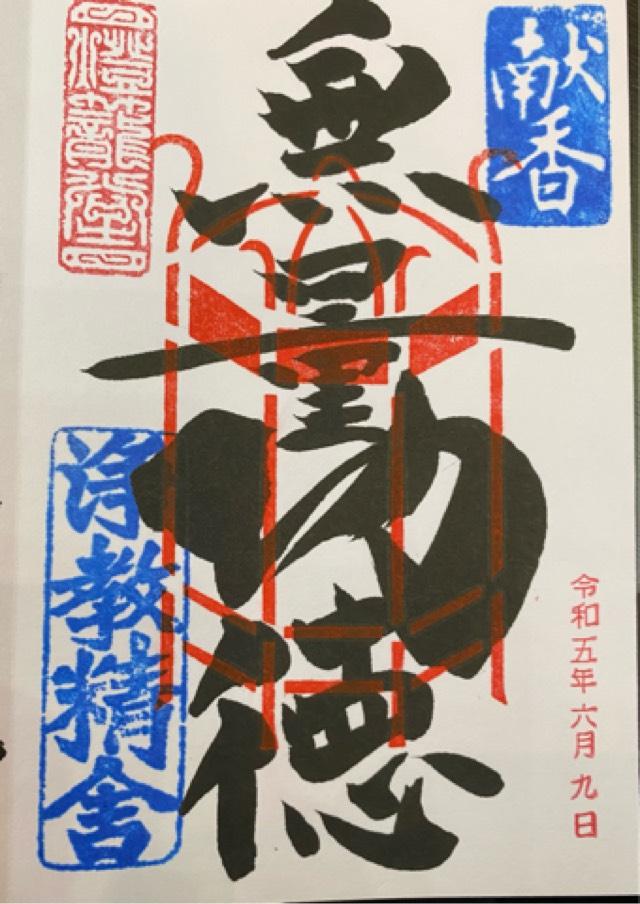 献香
令和五年六月九日
無量功徳
浄教精舎